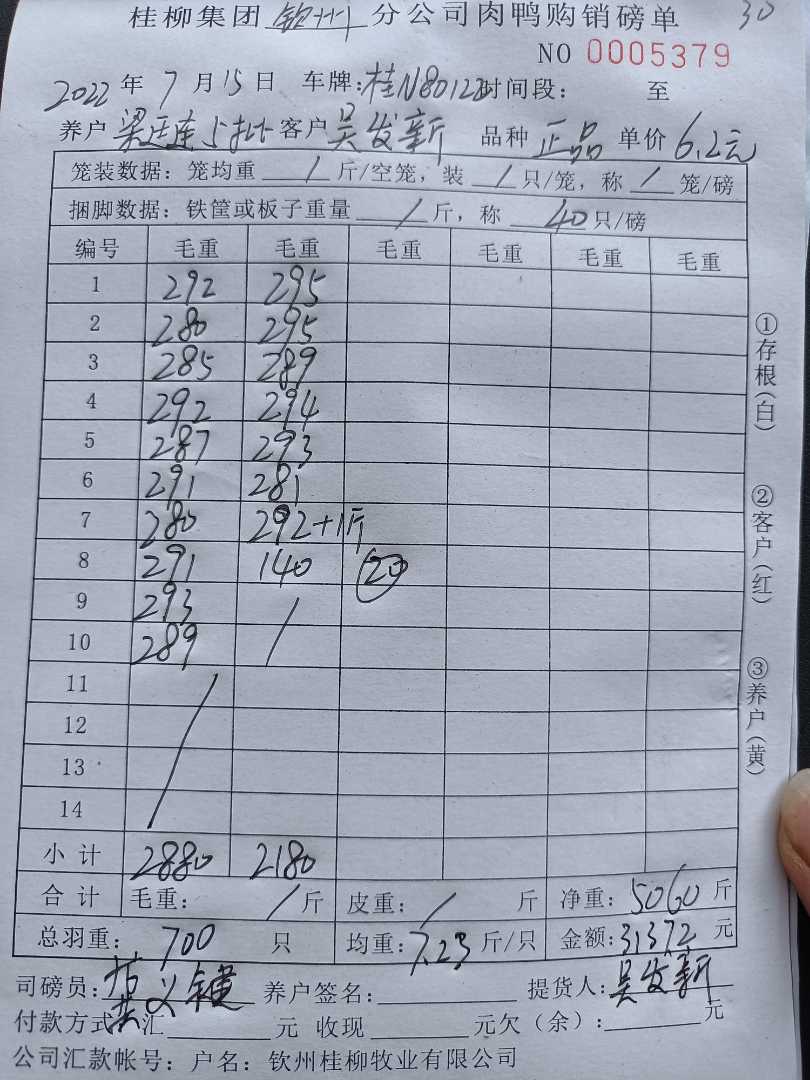 30
桂柳集团 钦州 分公司肉鸭购销磅单
NO 0005379
2022年7月15日 车牌:桂N80122 时间段: 至
养户 客户 吴发新 品种 正品 单价 6.2元
笼装数据:笼均重 / 斤/空笼,装 / 只/笼,称 / 笼/磅
捆脚数据:铁筐或板子重量 / 斤,称 40只/磅
编号 毛重 毛重 毛重 毛重 毛重 毛重
1 292 295
2 280 295
3 285 289
4 292 294
5 287 293
6 291 281
7 280 292+1斤
8 291 140 20
9 293 /
10 289
11 /
12
13
14
小计 2880 2180
合计 毛重: / 斤 皮重: / 斤 净重: 5060 斤
总羽重: 700 只 均重: 7.23 斤/只 金额: 31372 元
司磅员: 养户签名: 提货人: 吴发新
付款方式 汇 元 收现 元欠(余): 元
公司汇款帐号: 户名: 钦州桂柳牧业有限公司
①存根(白)
②客户(红)
③养户(黄)